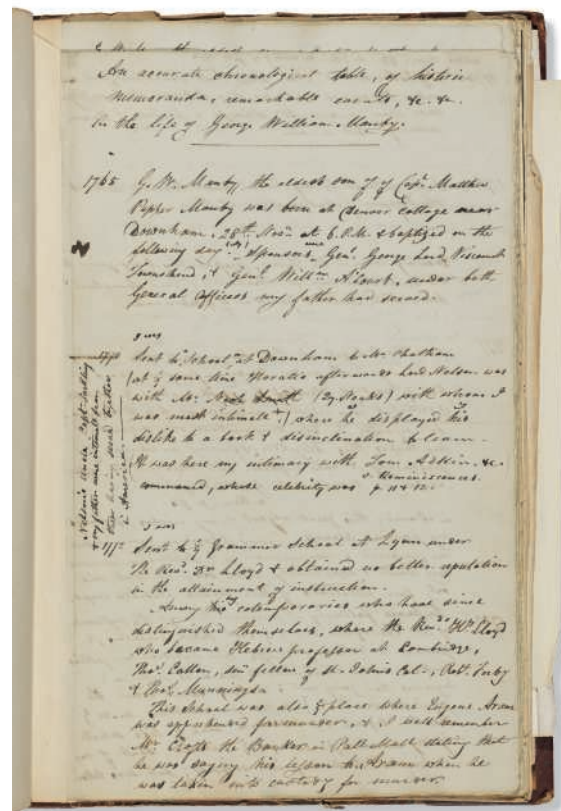 An accurate chronological table, of historic
memoranda, remarkable events, &c. &c.
In the life of George William Manby.
1765 G. W. Manby the eldest son of Capt. Matthew
Pepper Manby was born at Denver Cottage near
Downham. 28th Novr at 6 P.M. & baptized on the
following day. Sponsors Genl. George Lord Viscount
Townshend, & Genl. Willm A'Court, under both
General Officers my father had served.
I was
Sent to School at Downham to Mr. Chatham
(at y same time Horatio afterwards Lord Nelson was
with Mr. Noah Smith) with whom I
was most intimate) where he displayed his
dislike to a book & disinclination to learn.
It was here my intimacy with Tom Adkin &c.
commenced, whose celebrity was Reminiscences.
Nelson's Uncle Capt. Suckling
& my father were intimate from
their having served together
in America.
I was
Sent to y Grammar School at Lynn under
The Revd. Dr Lloyd & obtained no better reputation
in the attainment of instruction.
Among my cotemporaries who have since
distinguished themselves, where the Revd. Lloyd
who became Hebrew professor at Cambridge,
Thos. Catton, senr fellow of St. Johns Col., Robt. Forby
& Munnings.
This School was also y place where Eugene Aram
was apprehended for murder, & I well remember
Mr. the Banker in Pall Mall stating that
he was saying his lesson to Aram when he
was taken into custody for murder.